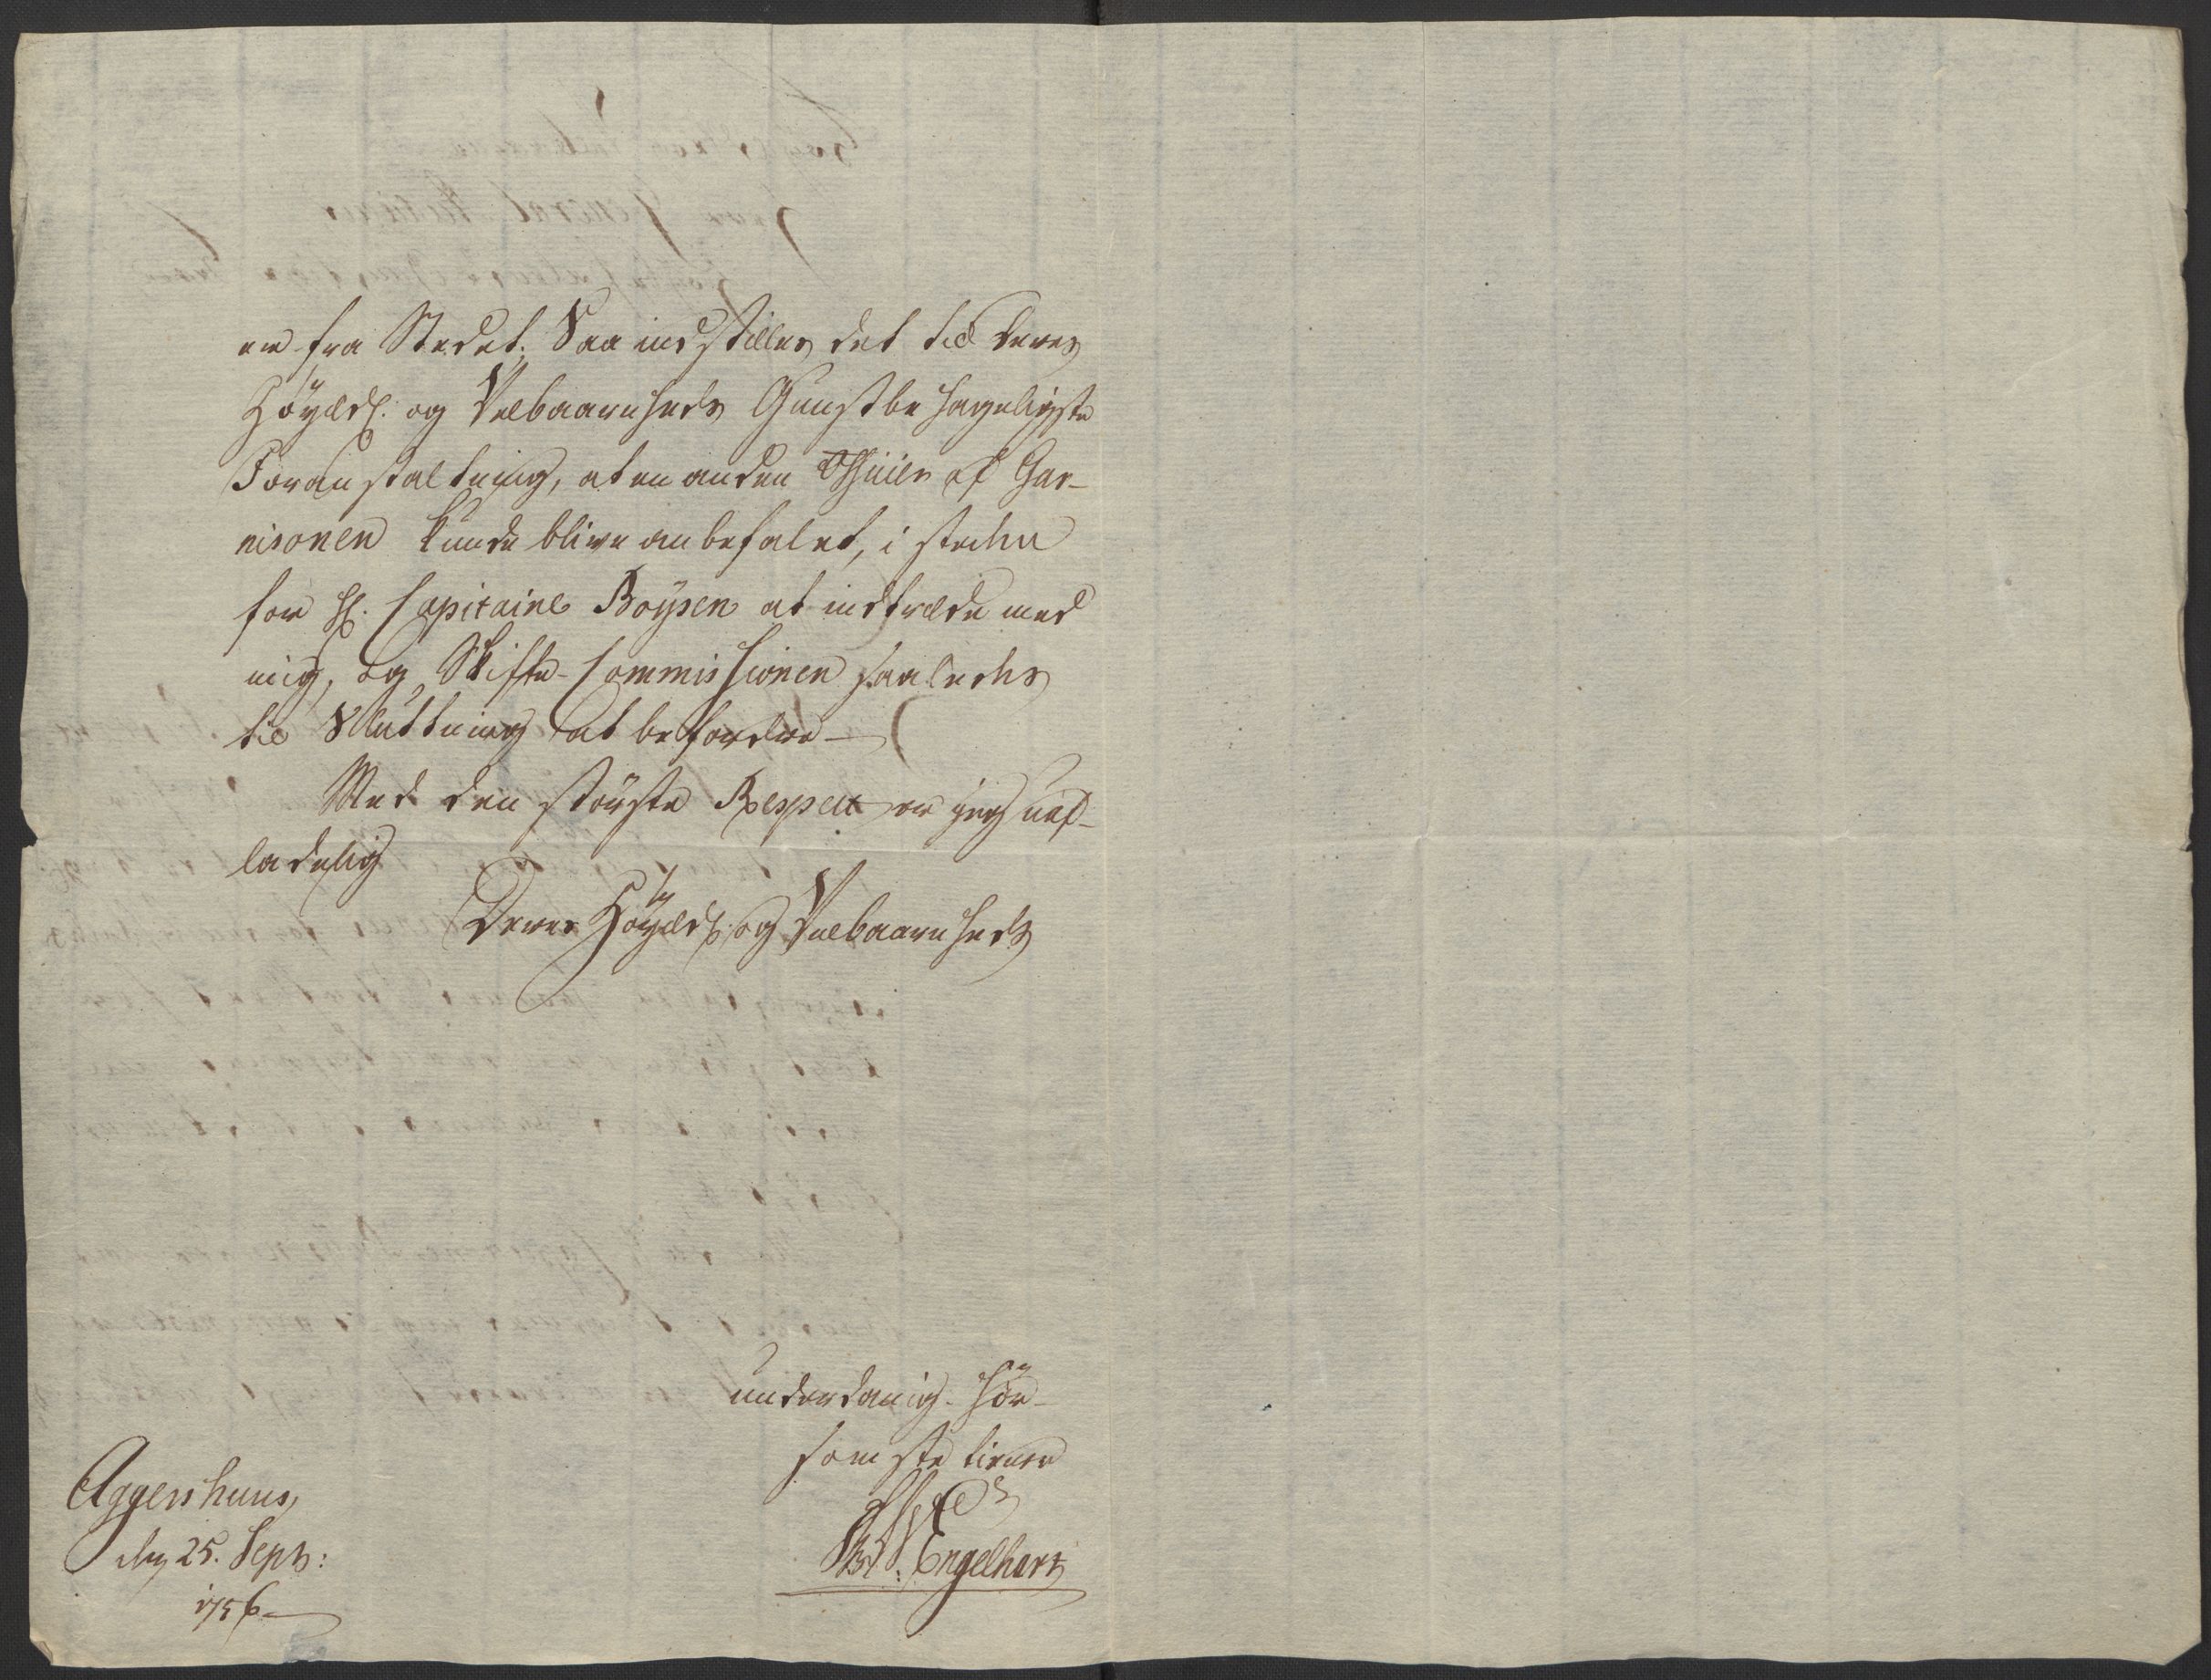 er fra Stedet; Saa indstilles det til Deres
Höyædl: og Velbaarenheds Gunstbehageligste
Foranstaltning, at en anden Officier af Gar-
nisonen kunde blive anbefalet, i steden
for H: Capitaine Boysen at indtræde med
mig, og Skifte-Commissionen saaledes
til Sluttning at befordre —
Med den störste Respect er jeg uaf-
ladelig
Deres Höyædl: og Velbaarenheds
underdanig-hör-
somste tiener
Engelhart
Aggershuus,
den 25. Septr:
1756 —